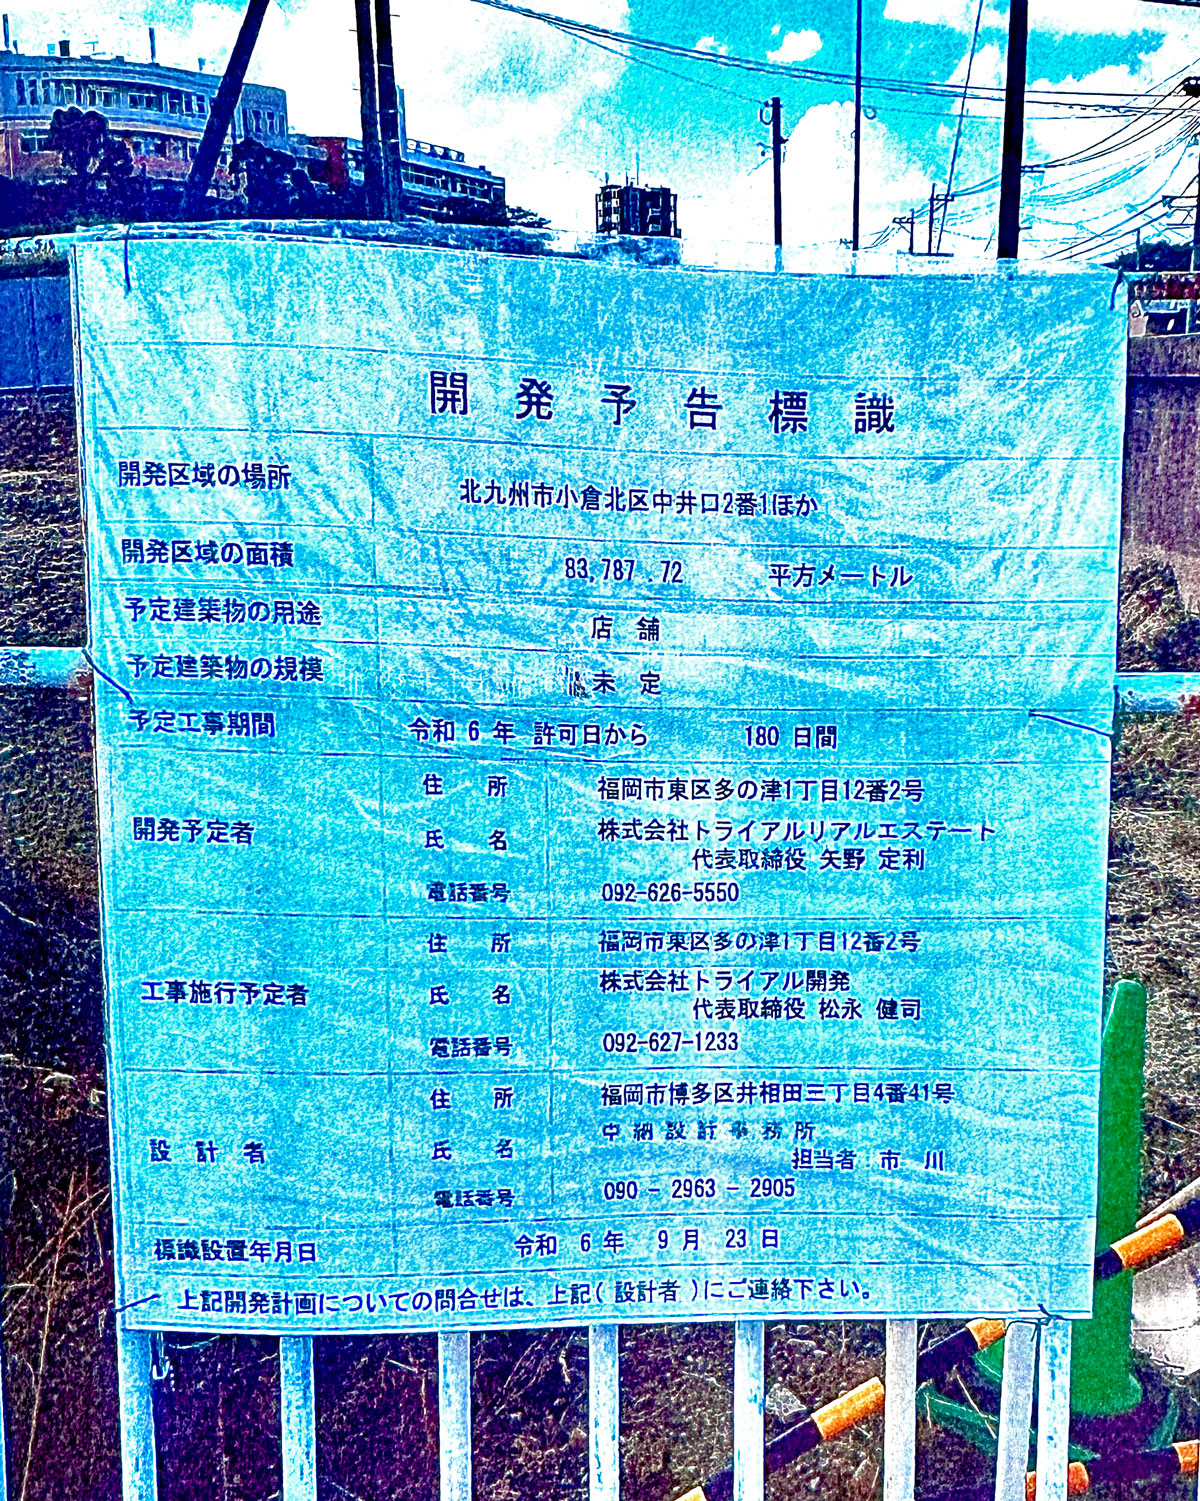 開発予告標識
開発区域の場所 北九州市小倉北区中井口2番1ほか
開発区域の面積 83,787.72 平方メートル
予定建築物の用途 店舗
予定建築物の規模 未定
予定工事期間 令和 6 年 許可日から 180 日間
開発予定者 住所 福岡市東区多の津1丁目12番2号
氏名 株式会社トライアルリアルエステート
代表取締役 矢野 定利
電話番号 092-626-5550
工事施行予定者 住所 福岡市東区多の津1丁目12番2号
氏名 株式会社トライアル開発
代表取締役 松永 健司
電話番号 092-627-1233
設計者 住所 福岡市博多区井相田三丁目4番41号
氏名 設計事務所
担当者 市川
電話番号 090 - 2963 - 2905
標識設置年月日 令和 6 年 9 月 23 日
上記開発計画についての問合せは、上記( 設計者 )にご連絡下さい。